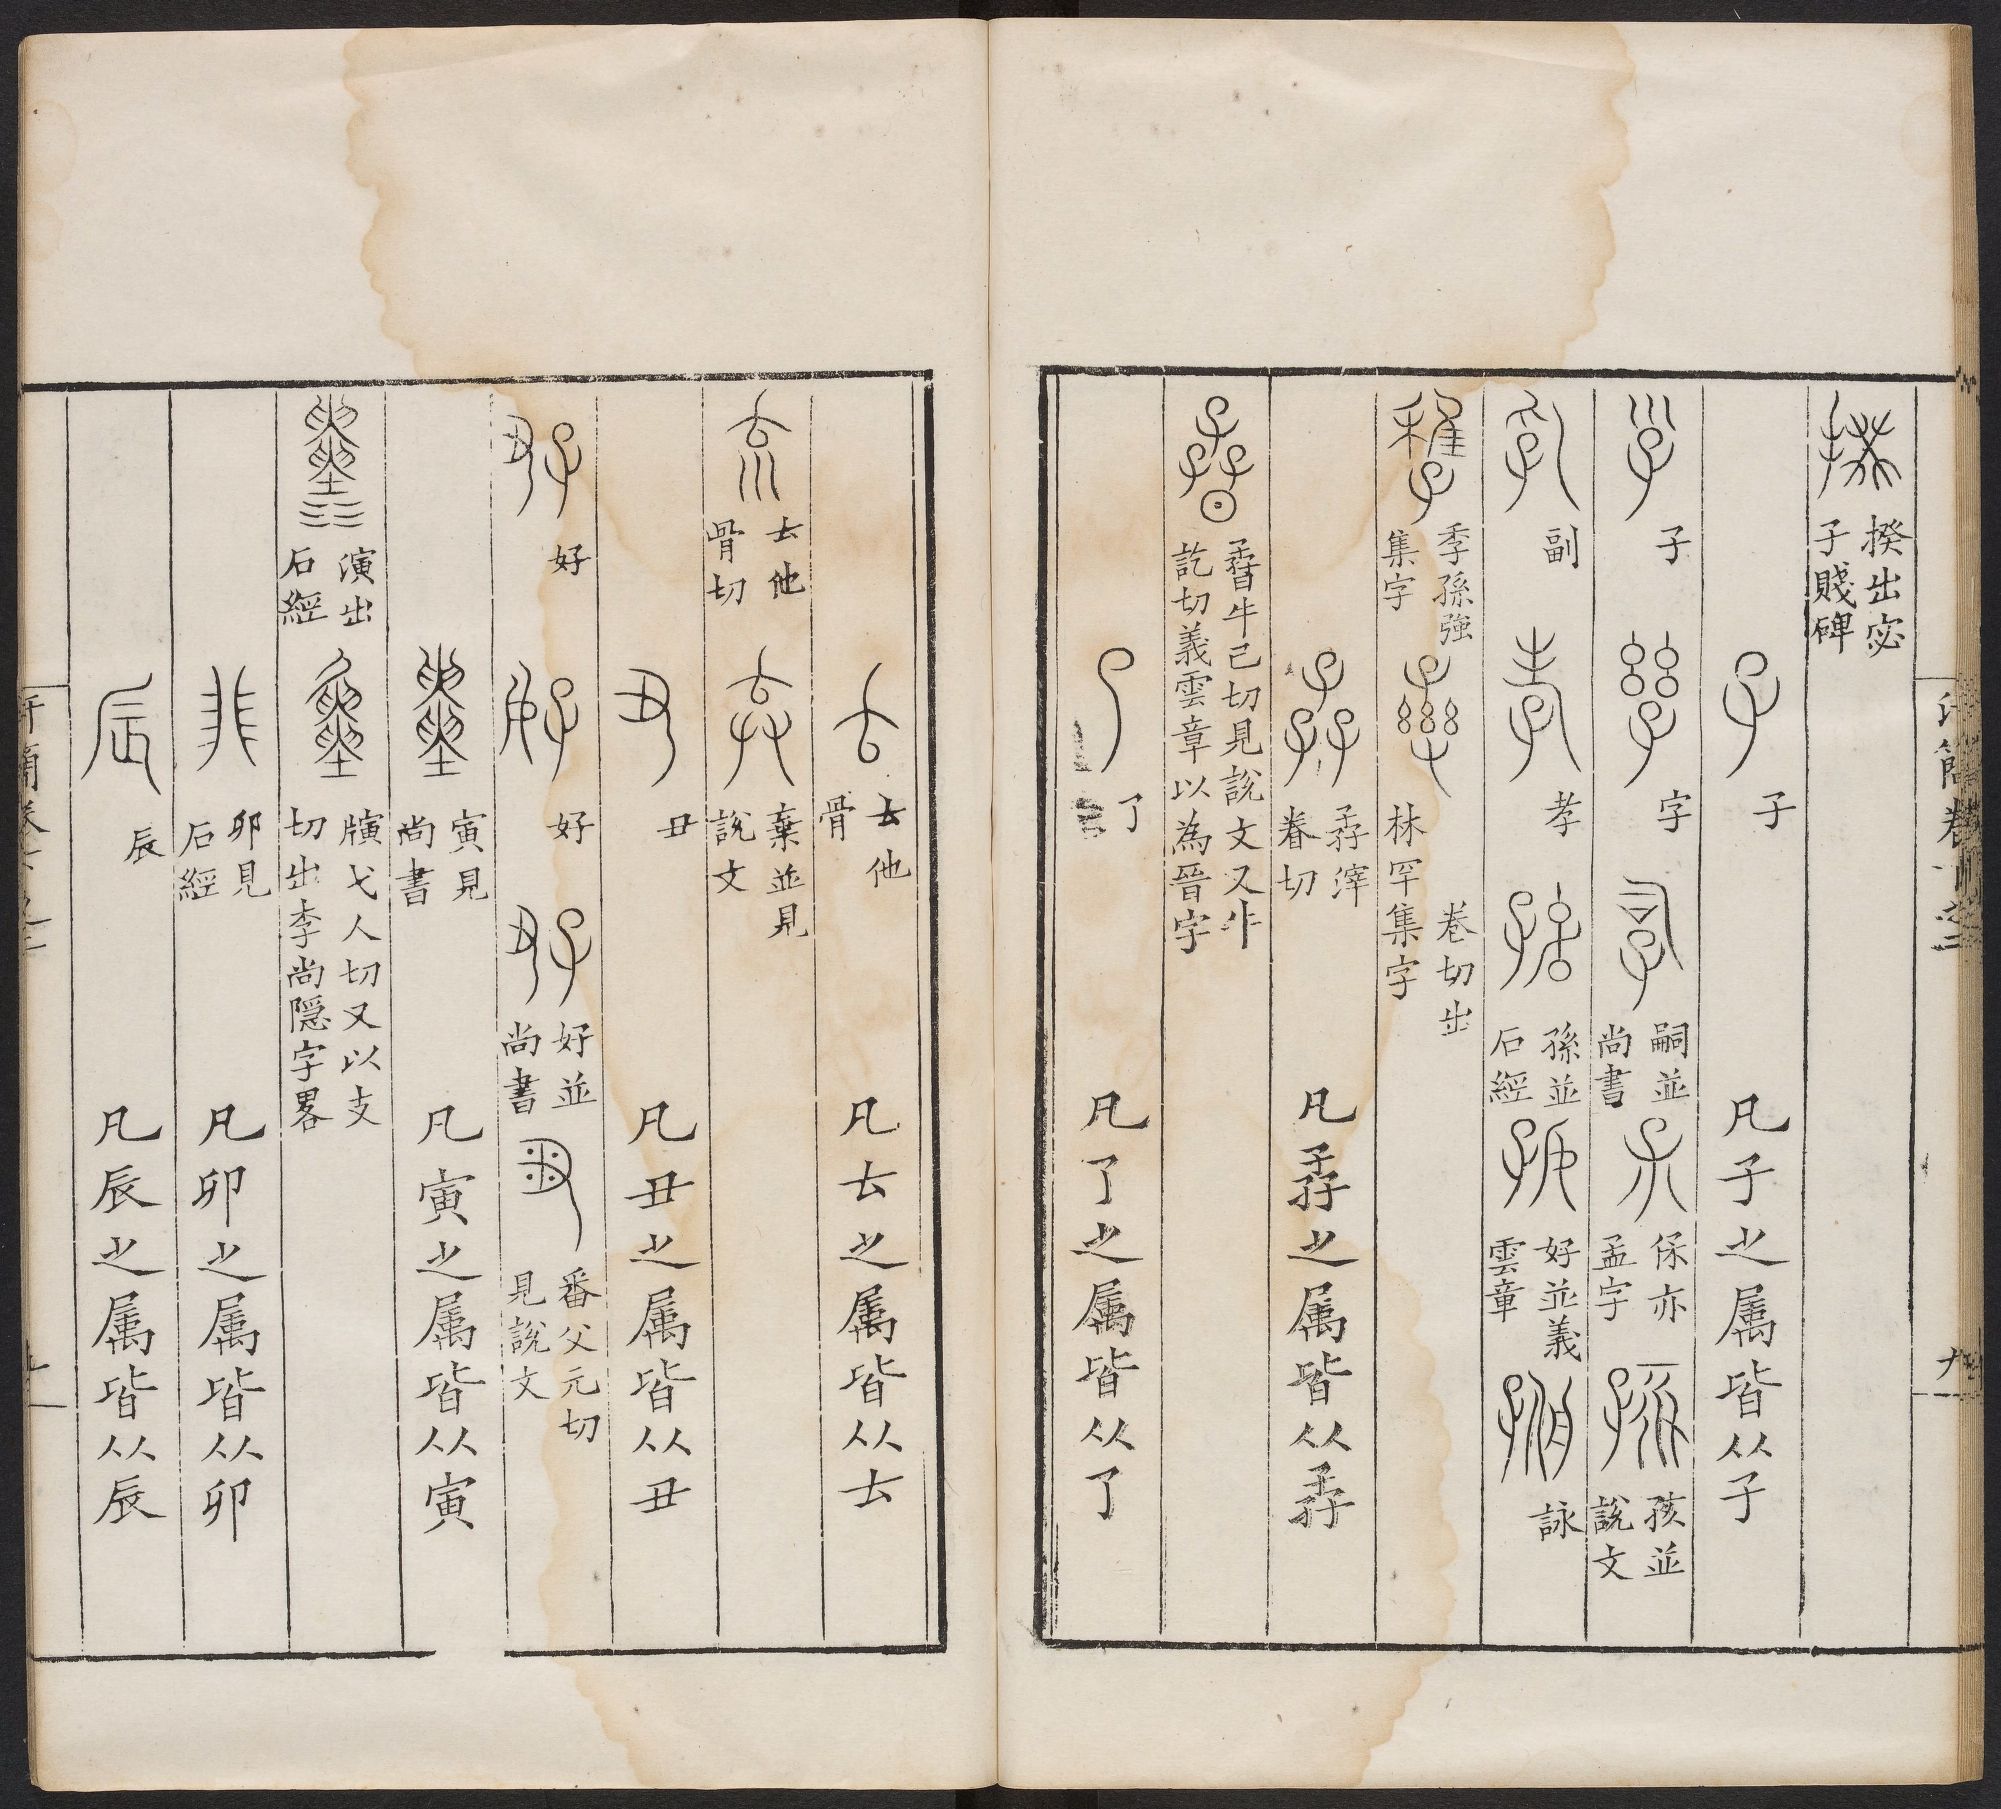 揆出宓子賤碑
子 凡子之属皆从子
子 字 嗣並尚書 保亦孟字 孩並說文
副 孝 孫並石經 好並義雲章 詠
季孫強集字 卷切出林罕集字
孨滓眷切 凡孨之属皆从孨
牛己切見說文又作訖切義雲章以為晉字
了 凡了之属皆从了
𠫓他骨 凡𠫓之属皆从𠫓
𠫓他骨切 棄並見說文
丑 凡丑之属皆从丑
好 好 好並尚書 番父元切見說文
寅見尚書 凡寅之属皆从寅
演出石經 戭弋人切又以支切出李尚隠字畧
卯見石經 凡卯之属皆从卯
辰 凡辰之属皆从辰